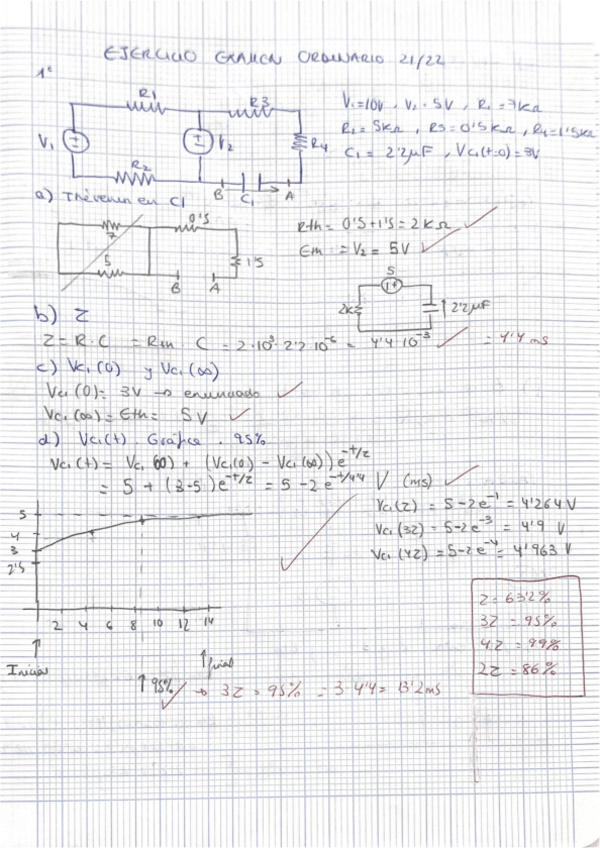 EJERCICIO EXAMEN ORDINARIO 21/22
1º
R1
R3
V1
V2
R4
R2
B C1 A
V1=10V, V2=5V, R1=7kΩ
R2=5kΩ, R3=0'5kΩ, R4=1'5kΩ
C1=2'2μF, VC1(t=0)=3V
a) Thévenin en C1
7
5
0'5
1'5
B A
Rth = 0'5+1'5 = 2kΩ
Em = V2 = 5V
5
2k
2'2μF
b) Z
Z = R·C = Rth · C = 2·10³·2'2·10⁻⁶ = 4'4·10⁻³ = 4'4 ms
c) VC1(0) y VC1(∞)
VC1(0) = 3V → enunciado
VC1(∞) = Eth = 5V
d) VC1(t). Gráfica. 95%
VC1(t) = VC1(∞) + (VC1(0) - VC1(∞)) e^-t/z
= 5 + (3-5) e^-t/z = 5 - 2e^-t/4'4 V (ms)
VC1(z) = 5-2e⁻¹ = 4'264 V
VC1(3z) = 5-2e⁻³ = 4'9 V
VC1(4z) = 5-2e⁻⁴ = 4'963 V
5
4
3
2'5
2 4 6 8 10 12 14
Inicial
final
95% → 3Z = 95% = 3·4'4 = 13'2ms
Z = 63'2%
3Z = 95%
4Z = 99%
2Z = 86%